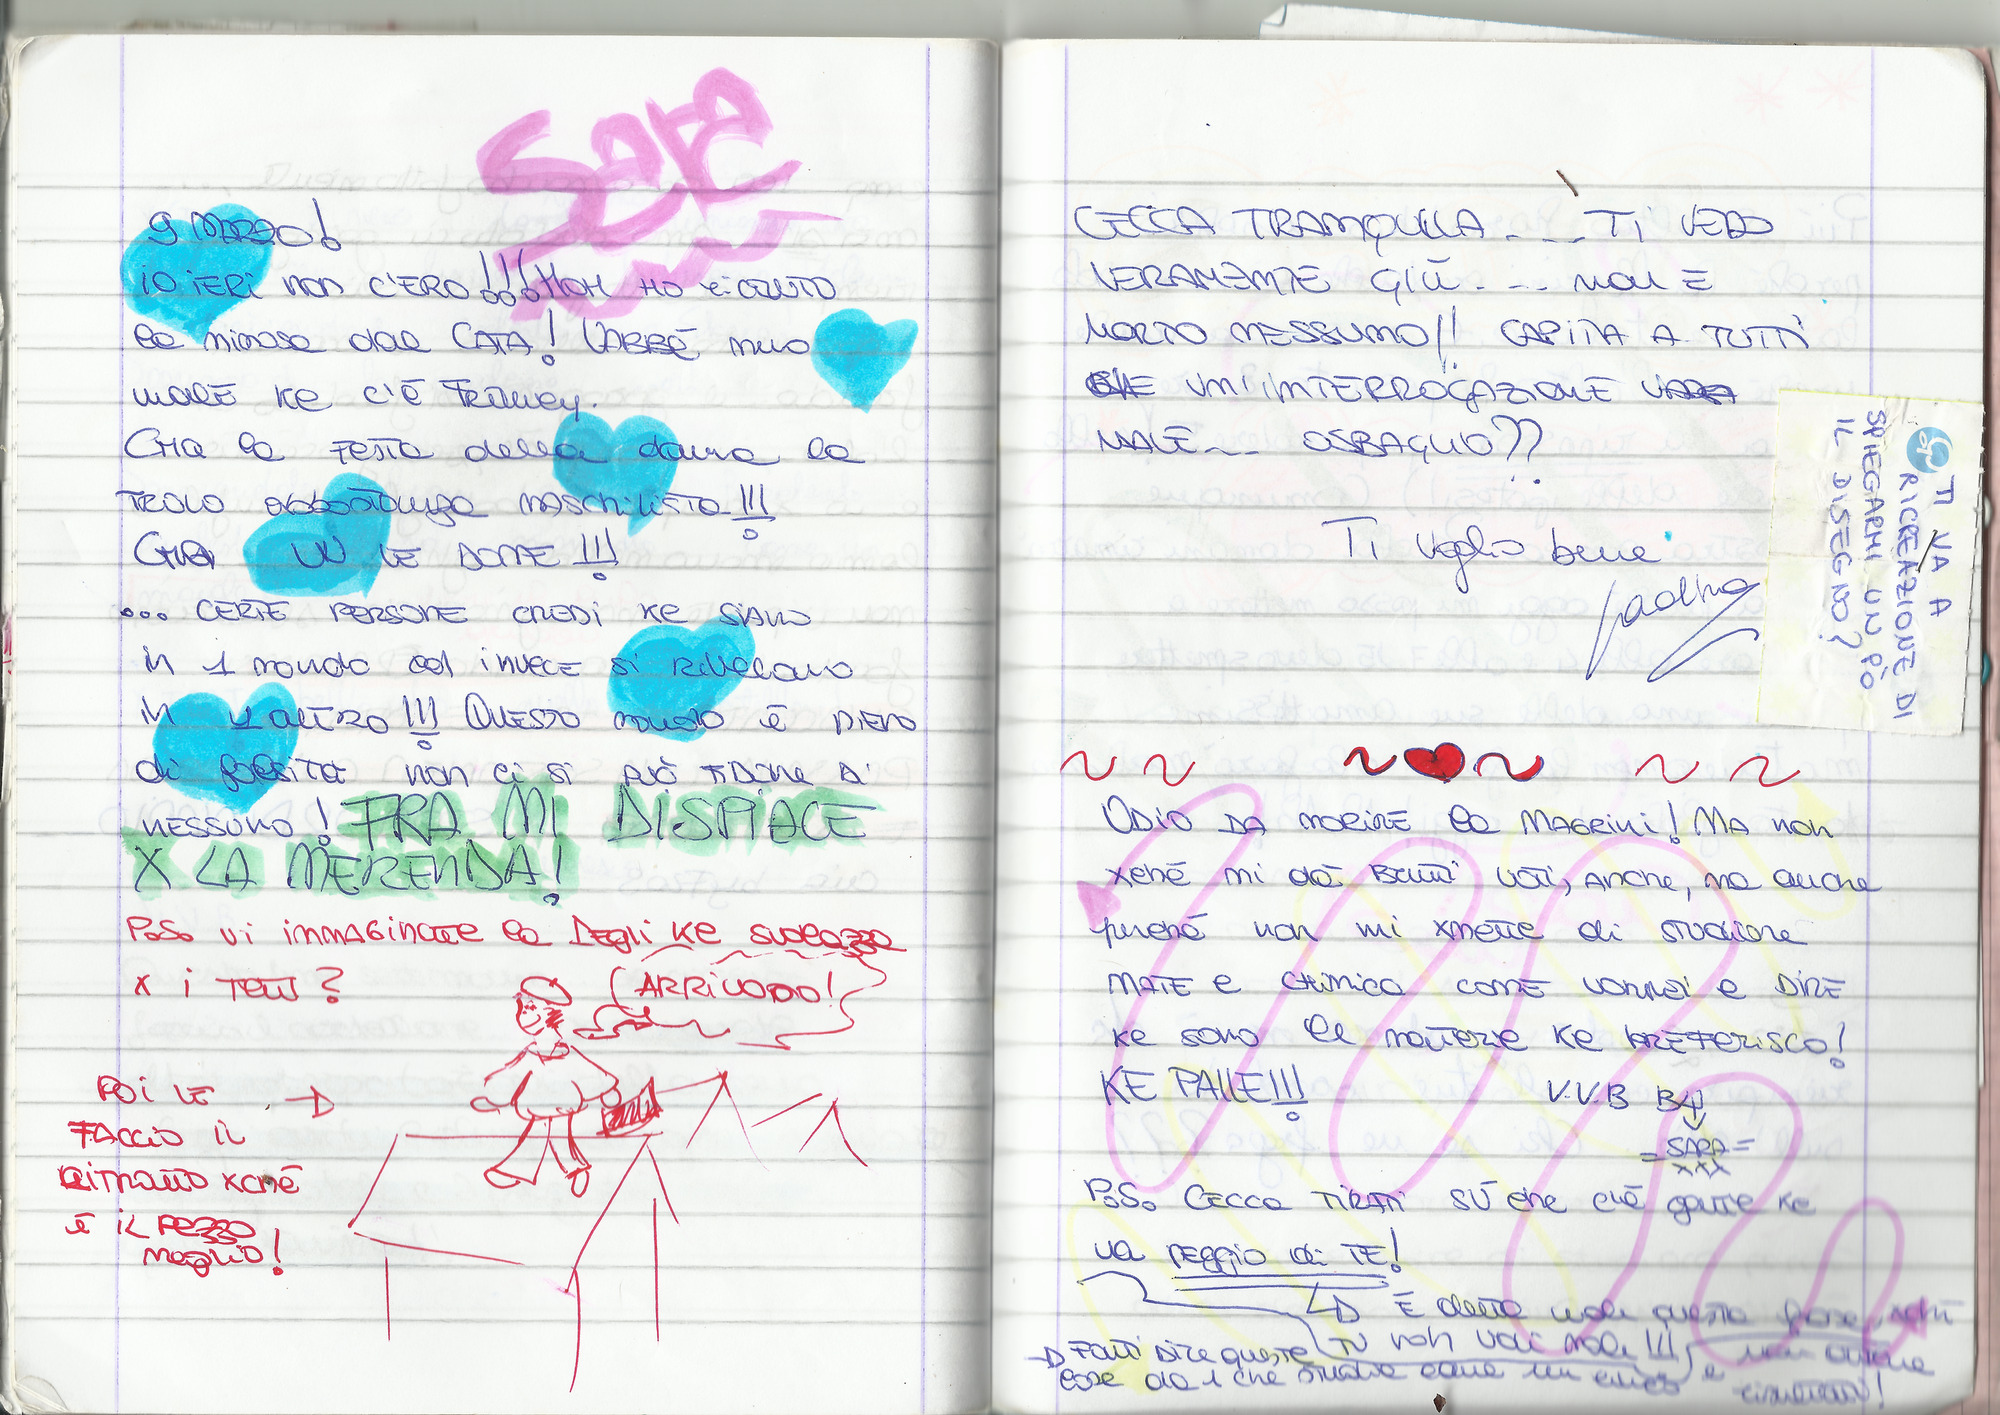 Sara
9 MARZO!
iO iERi non C'ERO!!! NON HO ricevuto
la mimosa dal CATA! VABBÈ meno
male ke c'è Franky.
CMQ la festa della donna la
TROVO abbastanza maschilista!!!
CMQ W LE DONNE!!!
... CERTE PERSONE CREDI KE SIANO
in 1 mondo ed invece si rivelano
in 1 altro!!! Questo mondo è pieno
di falsità non ci si può fidare di
nessuno! FRA MI DISPIACE
X LA MERENDA!
P.S. vi immaginate la Degli ke svolazza
x i tetti?
(ARRIVODO!
POi LE
FACCIO iL
RITRATTO xché
è iL PEZZO
meglio!
CECCA TRANQUILLA.... TI VEDO
VERAMENTE GIÙ.... non È
MORTO NESSUNO!! CAPITA A TUTTI
UN'INTERROGAZIONE
MALE... O SBAGLIO??
Ti voglio bene
TI VA A
RICREAZIONE DI
SPIEGARMI UN PÒ
IL DISEGNO?
ODIO DA MORIRE la MAGRINI! MA non
xché mi dà BRUTTI VOTI, ANCHE, ma anche
perché non mi xmette di studiare
MATE e chimica come vorrei e DIRE
ke sono le materie ke PREFERISCO!
KE PALLE!!!
V.V.B By
=SARA=
xxx
P.S. CECCA TIRATI SÙ che c'è gente ke
va peggio di TE!
È detta male questa frase, xché
TU non vai male!!!
Fatti dire queste
cose da 1 che studia come un